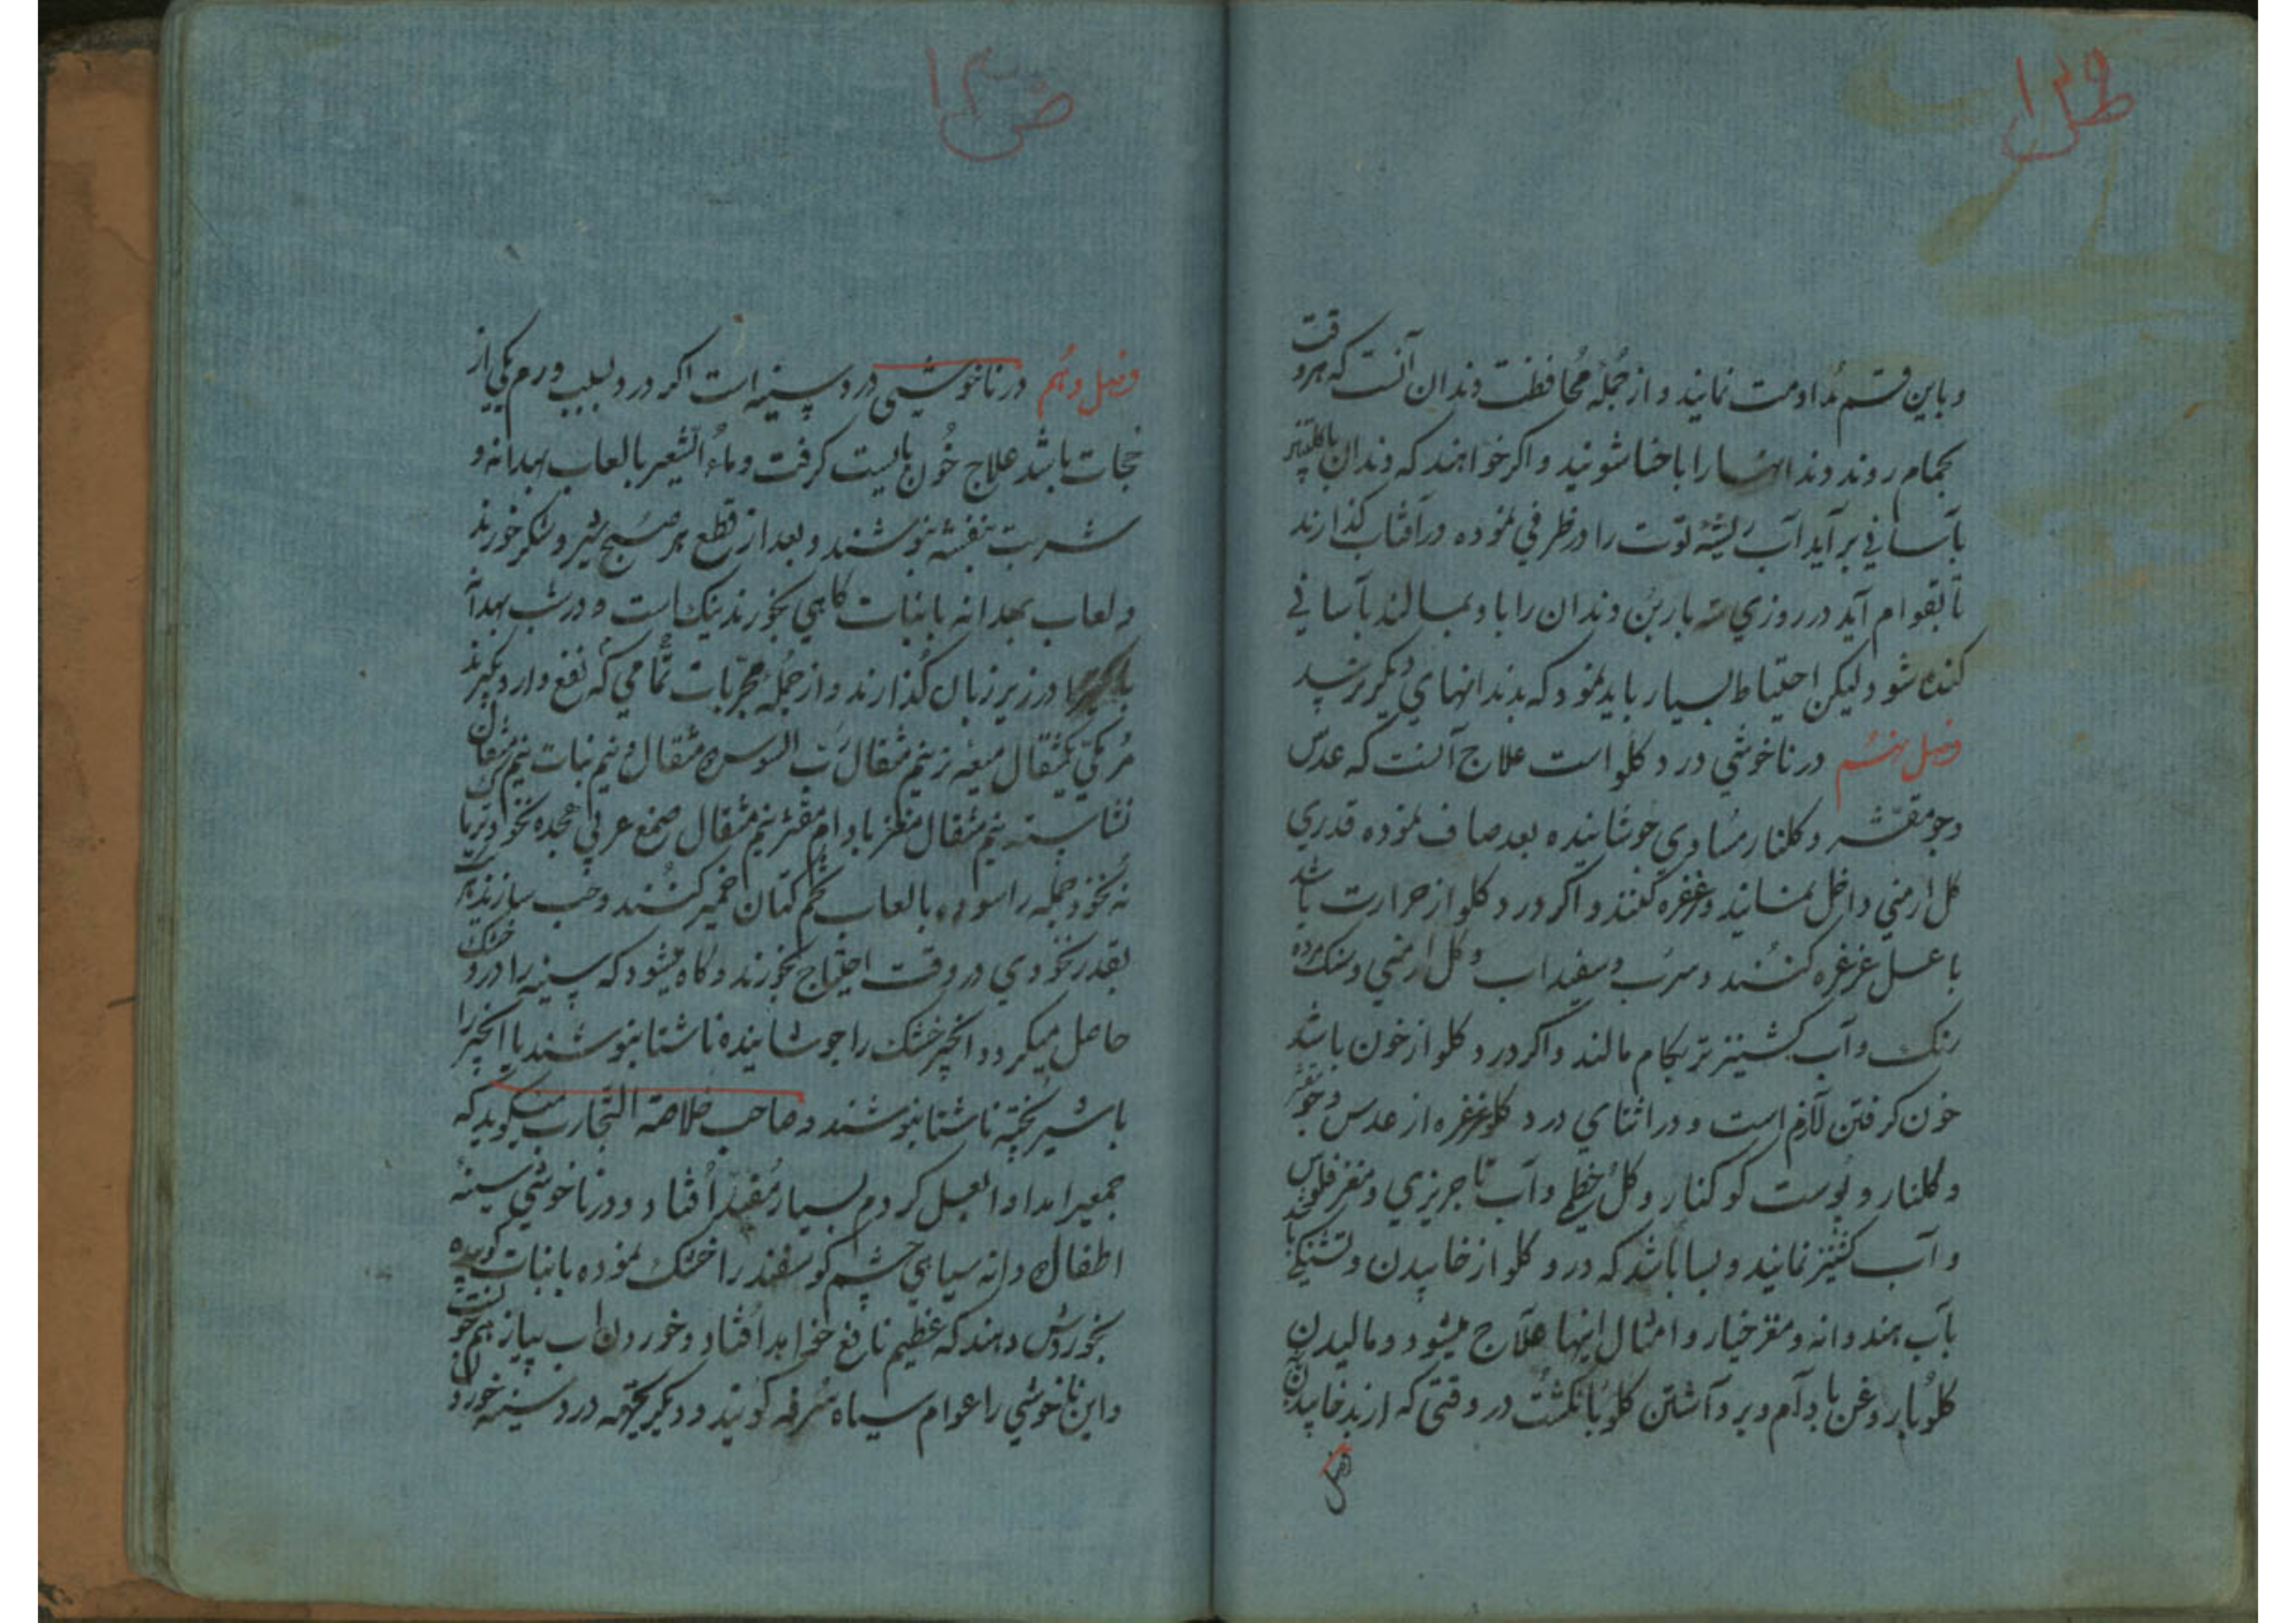 و باین قسم مداومت نمایند و از جمله محافظت دندان آنست که هر وقت
بحمام روند دندانها را با حنا شویند و اکر خواهند که دندان با کلبتین
بآسانی بر آید آب ریشهٔ توت را در ظرفی نموده در آفتاب کذارند
تا بقوام آید در روزی سه بار بن دندان را با و بمالند بآسانی
کنده شود لیکن احتیاط بسیار باید نمود که بدندانهای دیکر نرسد
فصل نهم در ناخوشی درد کلو است علاج آنست که عدس
و جو مقشر و کلنار مساوی جوشانیده بعد صاف نموده قدری
کل ارمنی داخل نمایند و غرغره کنند و اکر درد کلو از حرارت باشد
با عسل غرغره کنند و سرب و سفیداب و کل ارمنی و سنک
رنک و آب کشنیز تر بکام مالند و اکر درد کلو از خون باشد
خون کرفتن لازم است و در اثنای درد کلو غرغره از عدس و جو مقشر
و کلنار و پوست کوکنار و کل خطمی و آب تاجریزی و مغز فلوس
و آب کشنیز نمایند و بسا باشد که درد کلو از خابیدن و تشنکی
بآب هندوانه و مغز خیار و امثال اینها علاج میشود و مالیدن
کلو با روغن بادام و برداشتن کلو بانکشت در وقتی که
فصل
فصل دهم در ناخوشی درد سینه است اکر درد بسبب ورم یکی از
حجابات باشد علاج خون بایست کرفت و ماء الشعیر بالعاب بهدانه و
شربت بنفشه بنوشند و بعد از قطع هر صبح شیر و شکر خورند
و لعاب بهدانه با نبات کاهی بخورند نیک است و در شب
در زیر زبان کذارند و از جمله مجربات تمامی که نفع دارد بکیرند
مر مکی یکمثقال میعه نیم مثقال رب السوس مثقال و نیم نبات نیم مثقال
نشاسته نیم مثقال مغز بادام مقشر نیم مثقال صمغ عربی هجده نخود
نه نخود جمله را سوده بالعاب تخم کتان خمیر کنند و حب سازند
بقدر نخودی در وقت احتیاج بخورند و کاه میشود که سینه را درد خشک
حاصل میکردد انجیر خشک را جوشانیده ناشتا بنوشند یا انجیر را
با شیر پخته ناشتا بنوشند و صاحب خلاصة التجارب میکوید که
جمعیرا مداوا بعسل کردم بسیار مفید افتاد و در ناخوشی سینهٔ
اطفال دانه سیاهی چشم کوسفند را خشک نموده با نبات کوبیده
بخوردش دهند که عظیم نافع خواهد افتاد و خوردن آب پیاز هم خوبست
و این ناخوشی را عوام سیاه سرفه کویند و دیکر بجهته درد سینه